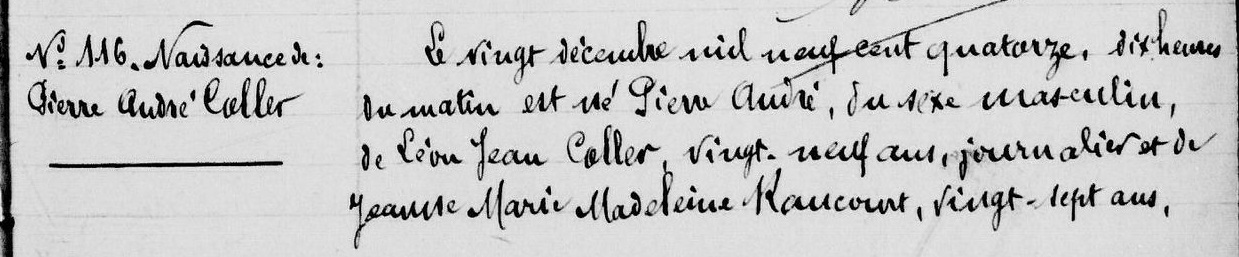 N° 116. Naissance de :
Pierre André Coller
Le vingt décembre mil neuf cent quatorze, dix heures
du matin est né Pierre André, du sexe masculin,
de Léon Jean Coller, vingt-neuf ans, journalier et de
Jeanne Marie Madeleine Kancourt, vingt-sept ans,